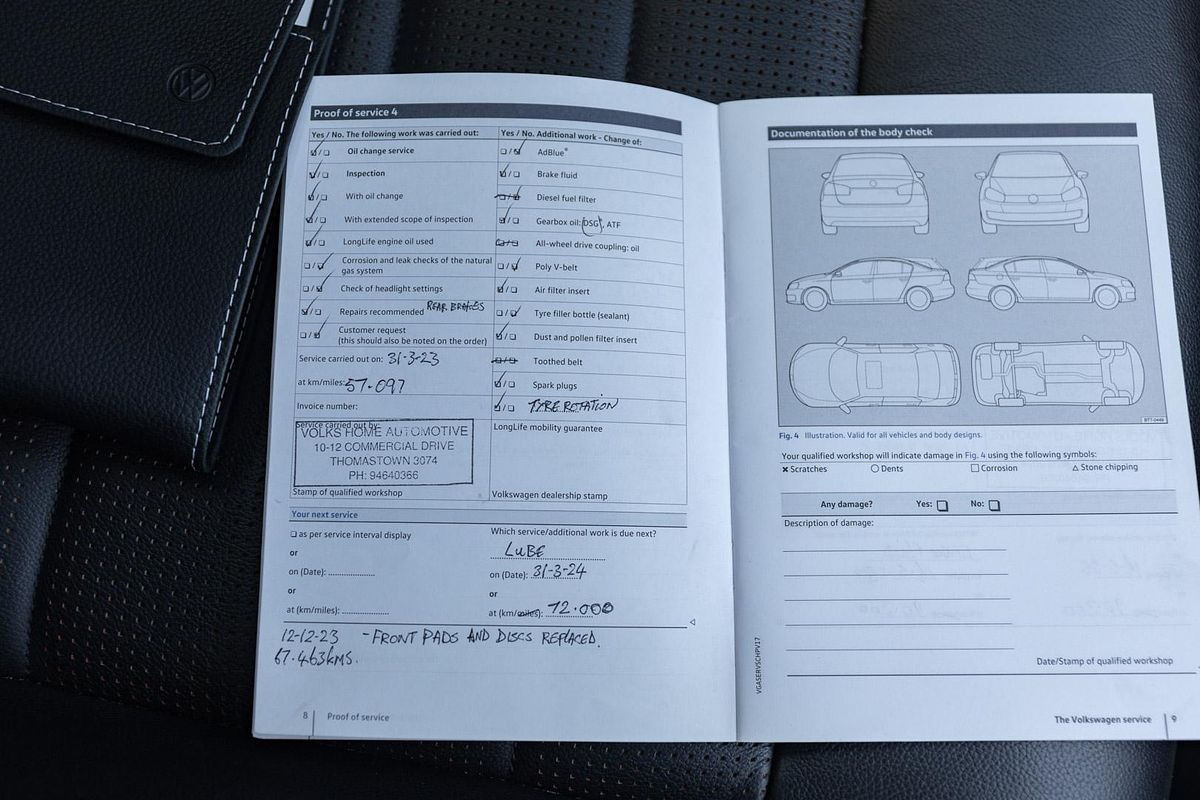 Proof of service 4
Yes / No. The following work was carried out:
Oil change service
Inspection
With oil change
With extended scope of inspection
LongLife engine oil used
Corrosion and leak checks of the natural
gas system
Check of headlight settings
Repairs recommended REAR BRAKES
Customer request
(this should also be noted on the order)
Service carried out on: 31-3-23
at km/miles: 57.097
Invoice number:
Service carried out by:
VOLKS HOME AUTOMOTIVE
10-12 COMMERCIAL DRIVE
THOMASTOWN 3074
PH: 94640366
Stamp of qualified workshop
Yes / No. Additional work - Change of:
AdBlue®
Brake fluid
Diesel fuel filter
Gearbox oil: DSG, ATF
All-wheel drive coupling: oil
Poly V-belt
Air filter insert
Tyre filler bottle (sealant)
Dust and pollen filter insert
Toothed belt
Spark plugs
TYRE ROTATION
LongLife mobility guarantee
Volkswagen dealership stamp
Your next service
as per service interval display
or
on (Date): ....................
or
at (km/miles): ....................
Which service/additional work is due next?
LUBE
on (Date): 31-3-24
or
at (km/miles): 72.000
12-12-23 - FRONT PADS AND DISCS REPLACED.
67.463KMS.
8 Proof of service
Documentation of the body check
BTT-0449
Fig. 4 Illustration. Valid for all vehicles and body designs.
Your qualified workshop will indicate damage in Fig. 4 using the following symbols:
× Scratches ○ Dents □ Corrosion △ Stone chipping
Any damage? Yes: No:
Description of damage:
Date/Stamp of qualified workshop
VGASERVSCHPV17
The Volkswagen service 9